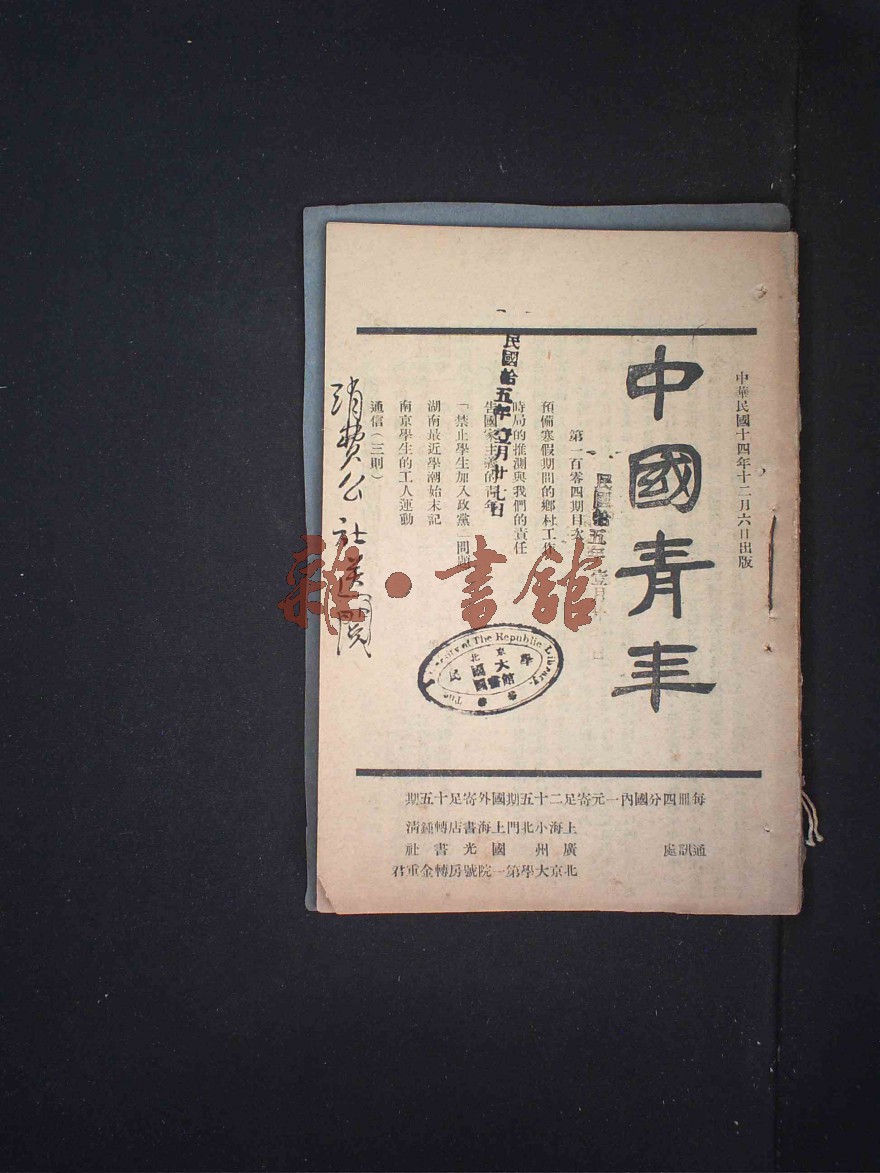 中華民國十四年十二月六日出版
中國青年
第一百零四期目次
預備寒假期間的鄉村工作
時局的推測與我們的責任
告國家主義的青年
「禁止學生加入政黨」問題
湖南最近學潮始末記
南京學生的工人運動
通信(三則)
民國拾五年壹月廿七日
民國拾五年壹月
消費公社送閱
雜·書館
The University of The Republic Library
北京
民國大學
圖書館
每冊四分國內一元寄足二十五期國外寄足十五期
通訊處
上海小北門上海書店轉鍾清
廣州國光書社
北京大學第一院號房轉金重君